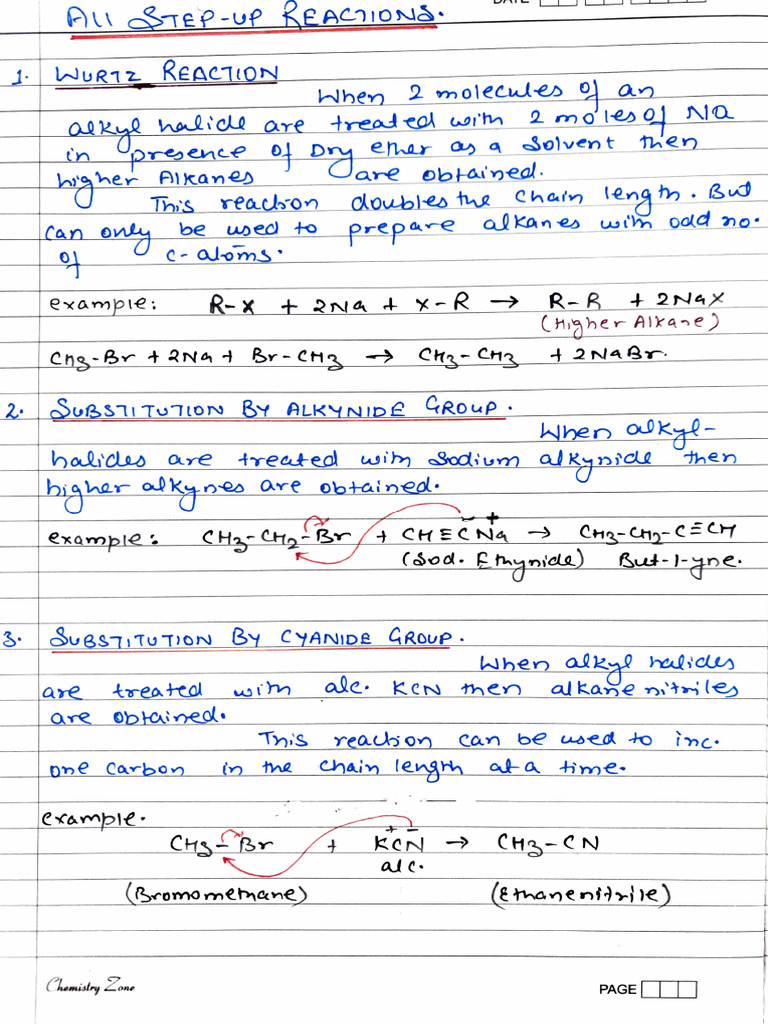 DATE
All STEP-UP REACTIONS.
1. WURTZ REACTION
When 2 molecules of an
alkyl halide are treated with 2 moles of Na
in presence of Dry ether as a solvent then
higher Alkanes are obtained.
This reaction doubles the chain length. But
can only be used to prepare alkanes with odd no.
of c-atoms.
example: R-X + 2Na + X-R → R-R + 2NaX
(Higher Alkane)
CH3-Br + 2Na + Br-CH3 → CH3-CH3 + 2NaBr.
2. SUBSTITUTION BY ALKYNIDE GROUP.
When alkyl-
halides are treated with sodium alkynide then
higher alkynes are obtained.
example: CH3-CH2-Br + CH≡C⁻Na⁺ → CH3-CH2-C≡CH
(Sod. Ethynide) But-1-yne.
3. SUBSTITUTION BY CYANIDE GROUP.
When alkyl halides
are treated with alc. KCN then alkane nitriles
are obtained.
This reaction can be used to inc.
one carbon in the chain length at a time.
example.
CH3-Br + K⁺CN⁻ → CH3-CN
alc.
(Bromomethane) (Ethanenitrile)
Chemistry Zone PAGE